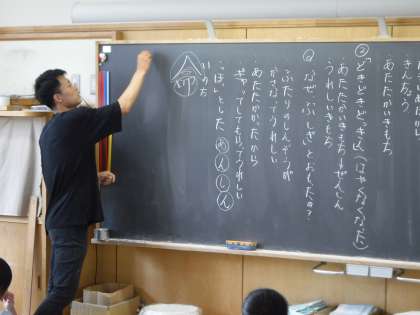 きんちょう
あたたかい
②「どきどきどきどき」(はやくなった)
あたたかいきもち
あたたかいきもち+ぜんしん
うれしいきもち
Q なぜ、ふしぎとおもたの?
ふたりのしんぞうが
かさなってうれしい
あたたかかったから
ぎゅってしてもらってうれしい
「ほっ」とした あんしん
いのち
命